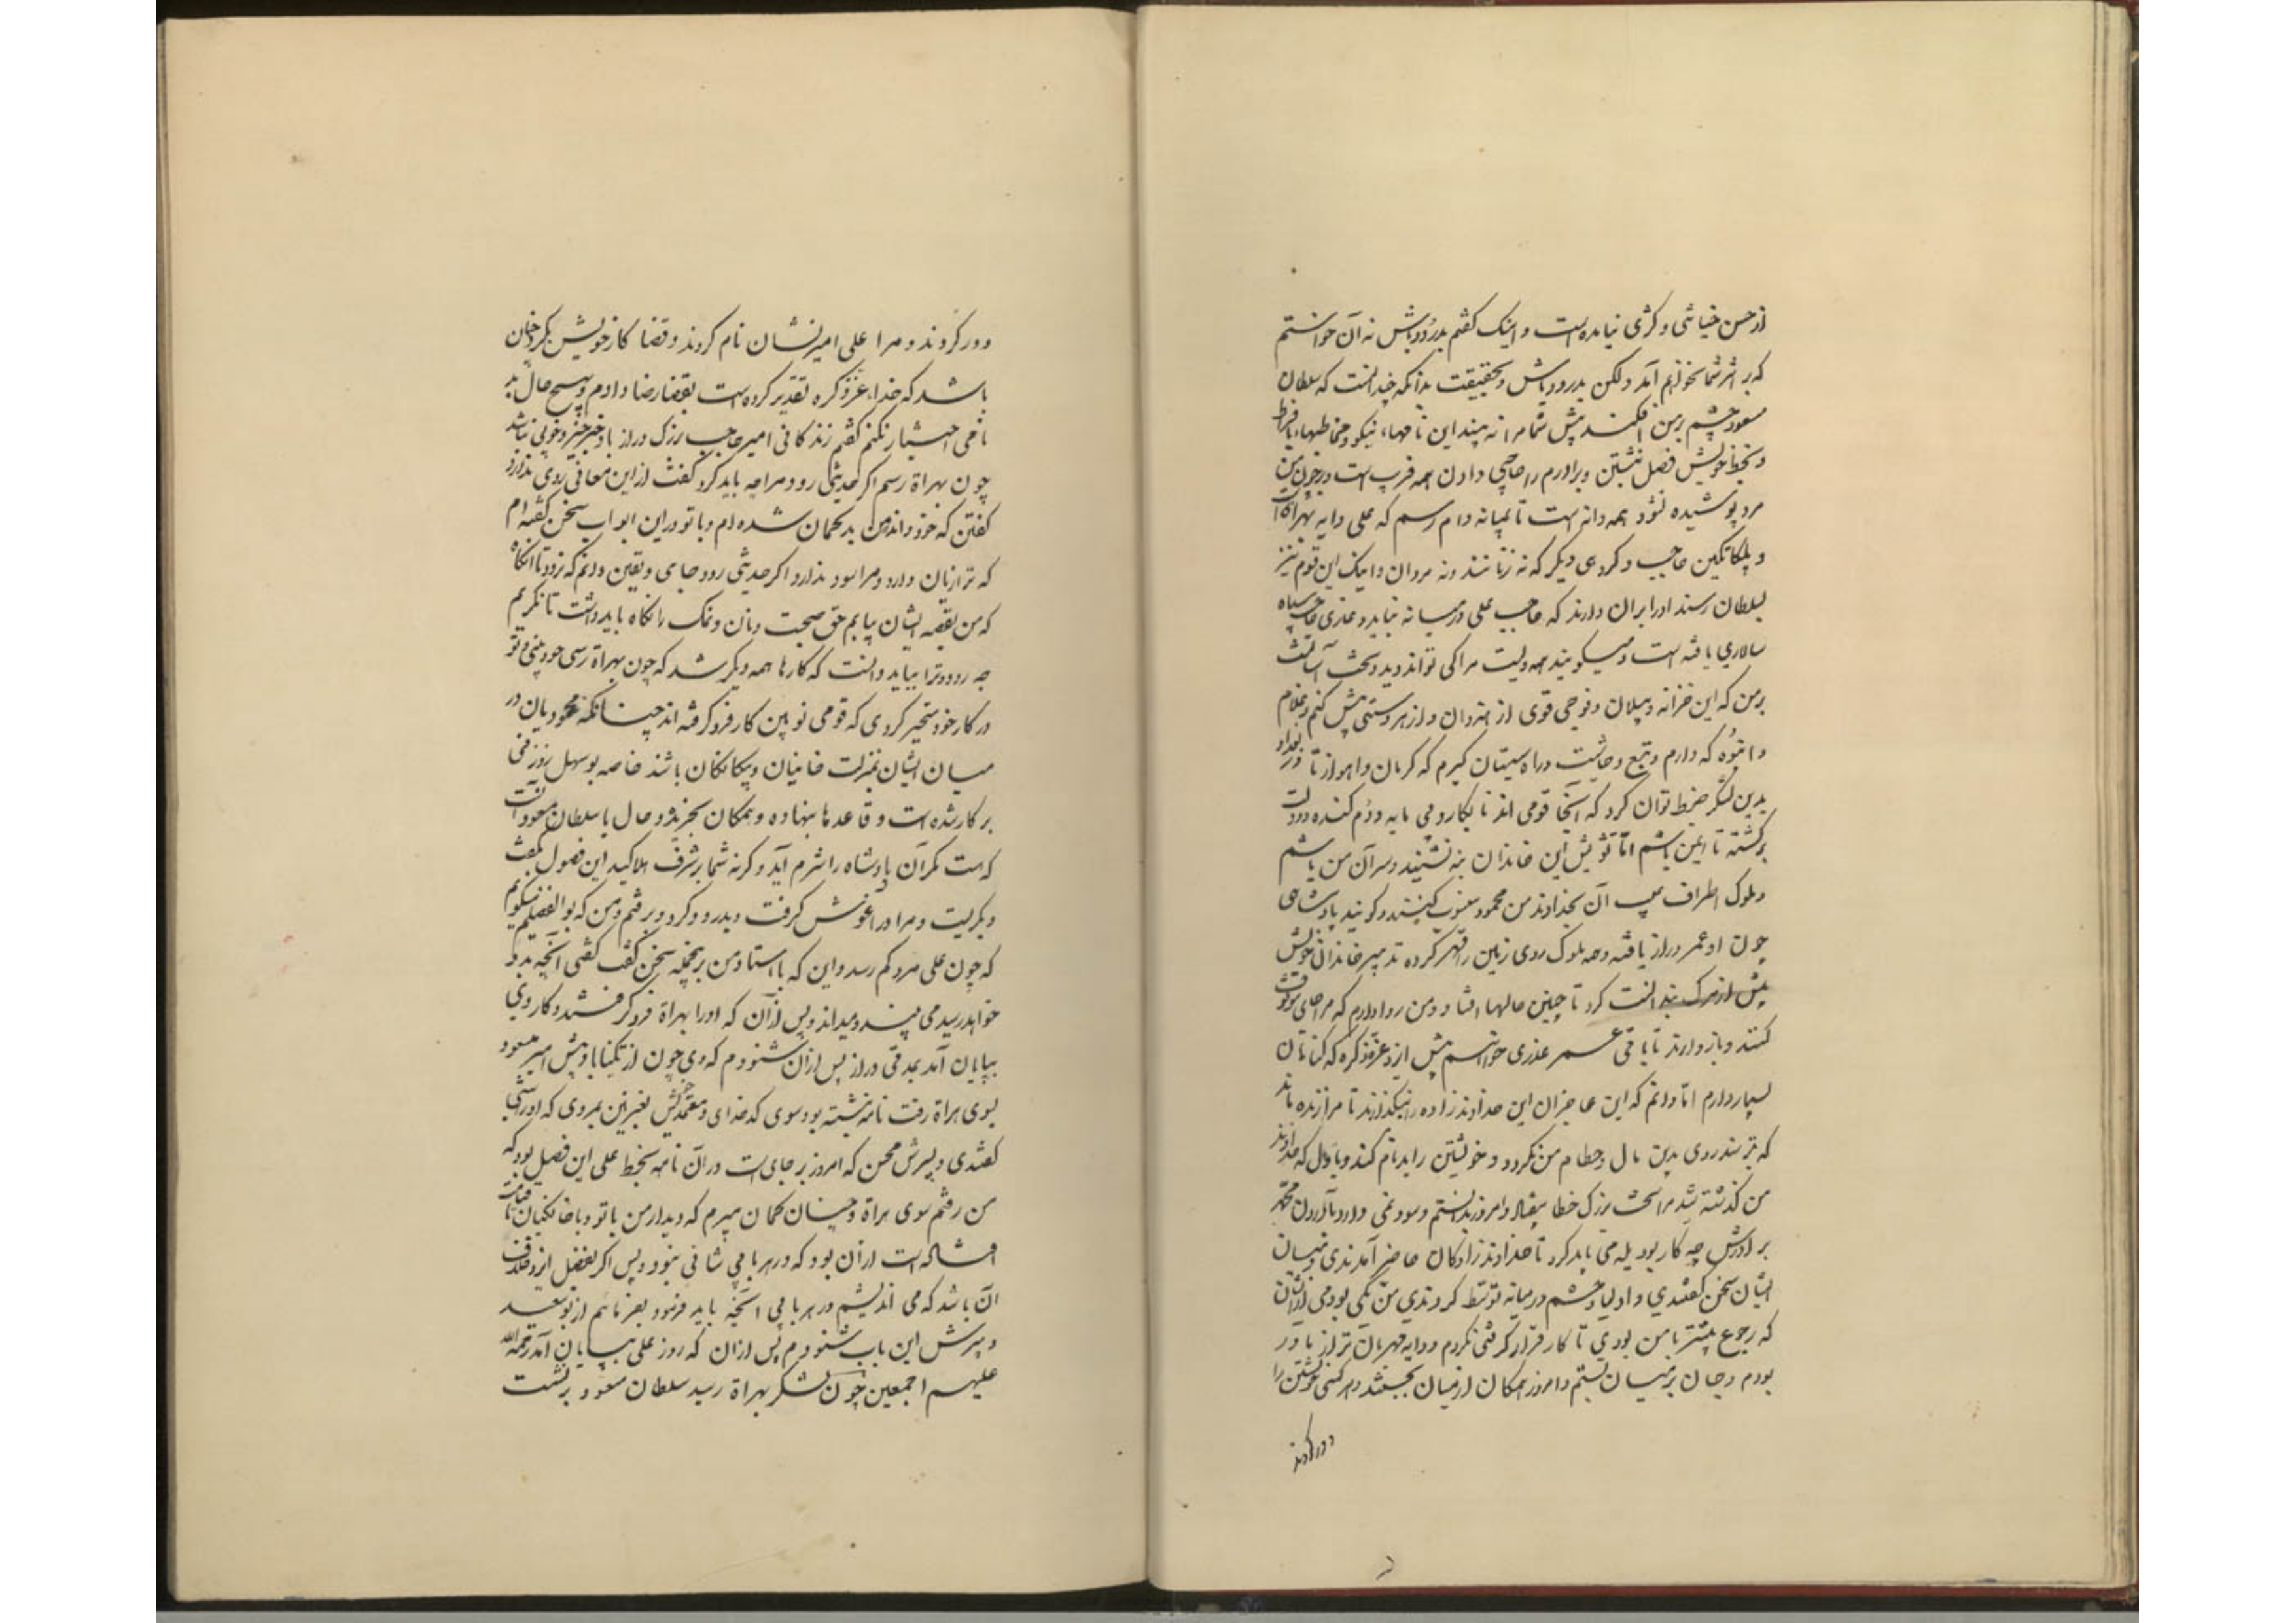 از حسن خیاثی و کژی نیامده است و اینک کفتم بدرود باش نه آن خواستم
که بر اثر شما نخواهم آمد ولکن بدرود باش و بحقیقت بدانکه چندانست که سلطان
مسعود چشم بر من افکند بیش شما مرا نه بیند این نامهاء نیکو و مخاطبهاء بافراط
و بخط خویش فصل نبشتن و برادرم را حاجبی دادن همه فریب است و بر چون من
مرد پوشیده نشود همه دانه است تا بمیانه دام رسم که علی دایه بهراة است
و بلکاتکین حاجب و کروهی دیکر که نه زنانند و نه مردان و اینک این قوم نیز
بسلطان رسند او را بران دارند که حاجب علی در میانه نباید و غازی حاجب سپاه
سالاری یافته است و میکویند همه ولیت مرا کی تواند دید و سخت آسانست
بر من که این خزانه و پیلان و فوجی قوی از هندوان و از هر دستی پیش کنم و غلام
و انبوه که دارم و تبع و حاشیت و راه سیستان کیرم که کرمان و اهواز تا در بغداد
بدین لشکر ضبط توان کرد که آنجا قومی اند نابکار و بی مایه و دم کنده و دولت
برکشته تا ایمن باشم اما تشویش این خاندان بنه نشیند و سر آن من باشم
و ملوک اطراف عیب آن بخداوند من محمود منسوب کنند و کویند پادشاهی
چون او عمر دراز یافته و همه ملوک روی زمین را قهر کرده تدبیر خاندان خویش
پیش از مرک بندانست کرد تا چنین حالها افتاد و من روا دارم که مرا جای موقوف
کنند و بازدارند تا باقی عمر عذری خواستم پیش ایزد عز ذکره که کناتان
بسیار دارم اما دانم که این عاجزان این خداوند زاده را نبکذارند تا مرا زنده ماند
که بترسند روی بدین مال و حطام من نکرد و خویشتن را بدنام کنند و باول که خداوند
من کذشته شد مرا سخت بزرک خطا بیفتاد و امروز بدانستم و سود نمی دارد بآوردن محمد
برادرش چه کار بود یله می باید کرد تا خداوند زادکان حاضر آمدندی و میان
ایشان سخن کفتندی و اولیا و حشم در میانه توسط کردندی من یکی بودمی ازیشان
که رجوع بیشتر با من بودی تا کار قرار کرفتی نکردم و دایه مهربان تر از مادر
بودم و جان بر میان بستم و امروز همکان از میان بجستند و هر کسی خویشتن را
دور کردند
دور کردند و مرا علی امیر نشان نام کردند و قضا کار خویش بکرد چنان
باشد که خداء عز ذکره تقدیر کرده است بقضا رضا دادم و بهیچ حال بد
نامی اختیار نکنم کفتم زندکانی امیر حاجب بزرک دراز باد جز خیر و خوبی نباشد
چون بهراة رسم اکر حدیثی رود مرا چه باید کرد کفت از این معانی روی ندارد
کفتن که خود داند که من بدکمان شده ام و با تو در این ابواب سخن کفته ام
که ترا زیان دارد و مرا سود ندارد اکر حدیثی رود جای و یقین دانم که نرود تا آنکاه
که من بقبضه ایشان بیایم حق صحبت و نان و نمک را نکاه باید داشت تا نکریم
چه رود و ترا بباید دانست که کارها همه دیکر شد که چون بهراة رسی خود بینی و تو
در کار خود متحیر کردی که قومی نو بین کار فرو کرفته اند چنانکه محمودیان در
میان ایشان بمنزلت خائنیان و بیکانکان باشند خاصه بوسهل زوزنی
بر کار شده است و قاعدها بنهاده و همکان بخریذ و حال با سلطان مسعود آنست
که هست مکر آن پادشاه را شرم آید و کرنه شما بر شرف هلاکید این فصول بکفت
و بکریست و مرا در آغوش کرفت و بدرود کرد و برفتم و من که بوالفضلم میکویم
که چون علی مرد کم رسد و این که با استادمن برین جمله سخن کفت کفتی آنچه بدو
خواهد رسید می بیند و میداند و پس از آن که او را بهراة فرو کرفتند و کار وی
بپایان آمد بمدتی دراز پس از آن شنودم که وی چون از تکیناباد پیش امیر مسعود
بسوی هراة رفت نامه نبشته بود سوی کدخدای و معتمد خویش بغزنین بمردی که او را شبی
کفتندی و پسرش محسن که امروز بر جای است در آن نامه بخط علی این فصل بود که
من رفتم سوی هراة و چنان کمان میبرم که دیدار من با تو و با خانکیان تا قیامت
افتاده است از آن بود که در هر بابی مثالی نبود و پس اکر بفضل ایزد خلاف
آن باشد که می اندیشم در هر بابی آنچه باید فرمود بفرمایم از بوسعید
و پسرش این باب شنودم پس از آن که روز علی بپایان آمد رحمة الله
علیهم اجمعین چون لشکر بهراة رسید سلطان مسعود برنشست